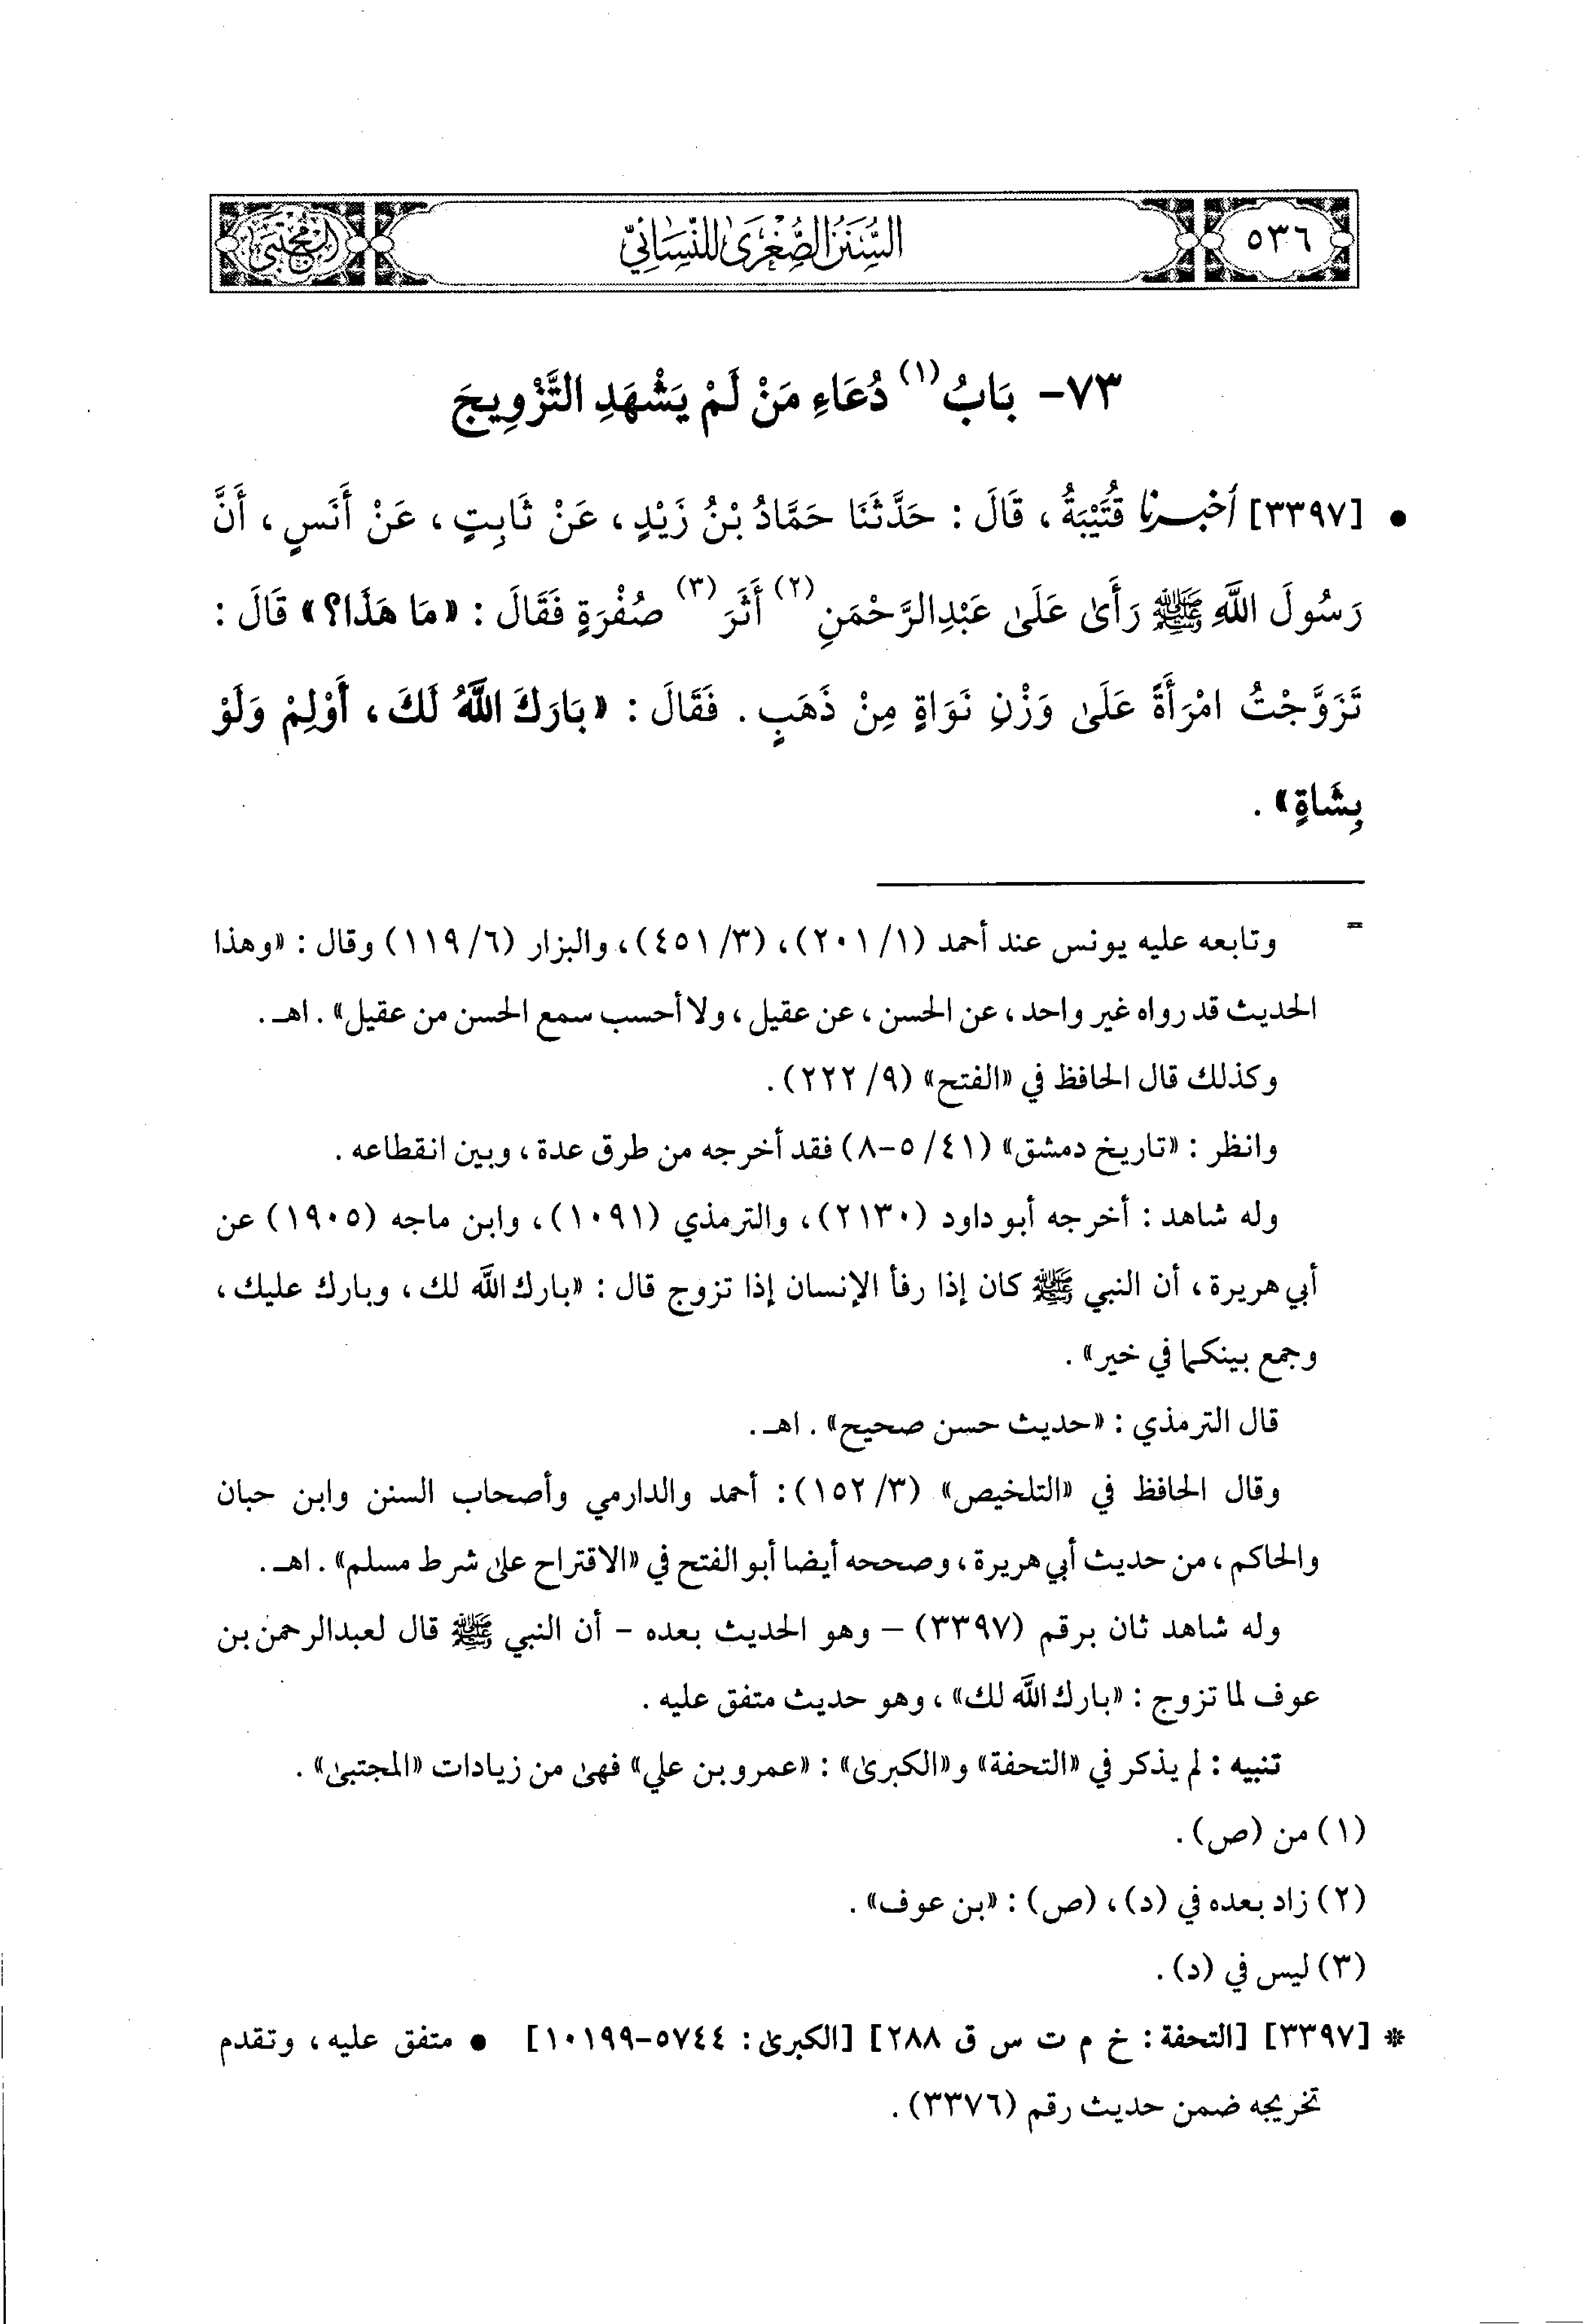 ٥٣٦
السُّنَنُ الصُّغْرَىٰ لِلنَّسَائِيِّ
المجتبى
٧٣- بَابُ(١) دُعَاءِ مَنْ لَمْ يَشْهَدِ التَّزْوِيجَ
• [٣٣٩٧] أَخْبَرَنَا قُتَيْبَةُ، قَالَ: حَدَّثَنَا حَمَّادُ بْنُ زَيْدٍ، عَنْ ثَابِتٍ، عَنْ أَنَسٍ، أَنَّ
رَسُولَ اللَّهِ ﷺ رَأَىٰ عَلَىٰ عَبْدِالرَّحْمَنِ(٢) أَثَرَ(٣) صُفْرَةٍ فَقَالَ: «مَا هَذَا؟» قَالَ:
تَزَوَّجْتُ امْرَأَةً عَلَىٰ وَزْنِ نَوَاةٍ مِنْ ذَهَبٍ. فَقَالَ: «بَارَكَ اللَّهُ لَكَ، أَوْلِمْ وَلَوْ
بِشَاةٍ».
= وتابعه عليه يونس عند أحمد (١/ ٢٠١)، (٣/ ٤٥١)، والبزار (٦/ ١١٩) وقال: «وهذا
الحديث قد رواه غير واحد، عن الحسن، عن عقيل، ولا أحسب سمع الحسن من عقيل». اهـ.
وكذلك قال الحافظ في «الفتح» (٩/ ٢٢٢).
وانظر: «تاريخ دمشق» (٤١/ ٥-٨) فقد أخرجه من طرق عدة، وبين انقطاعه.
وله شاهد: أخرجه أبو داود (٢١٣٠)، والترمذي (١٠٩١)، وابن ماجه (١٩٠٥) عن
أبي هريرة، أن النبي ﷺ كان إذا رفأ الإنسان إذا تزوج قال: «بارك اللَّه لك، وبارك عليك،
وجمع بينكما في خير».
قال الترمذي: «حديث حسن صحيح». اهـ.
وقال الحافظ في «التلخيص» (٣/ ١٥٢): أحمد والدارمي وأصحاب السنن وابن حبان
والحاكم، من حديث أبي هريرة، وصححه أيضا أبو الفتح في «الاقتراح علىٰ شرط مسلم». اهـ.
وله شاهد ثان برقم (٣٣٩٧) - وهو الحديث بعده - أن النبي ﷺ قال لعبدالرحمن بن
عوف لما تزوج: «بارك اللَّه لك»، وهو حديث متفق عليه.
تنبيه: لم يذكر في «التحفة» و«الكبرىٰ»: «عمرو بن علي» فهىٰ من زيادات «المجتبىٰ».
(١) من (ص).
(٢) زاد بعده في (د)، (ص): «بن عوف».
(٣) ليس في (د).
* [٣٣٩٧] [التحفة: خ م ت س ق ٢٨٨] [الكبرىٰ: ٥٧٤٤-١٠١٩٩] • متفق عليه، وتقدم
تخريجه ضمن حديث رقم (٣٣٧٦).